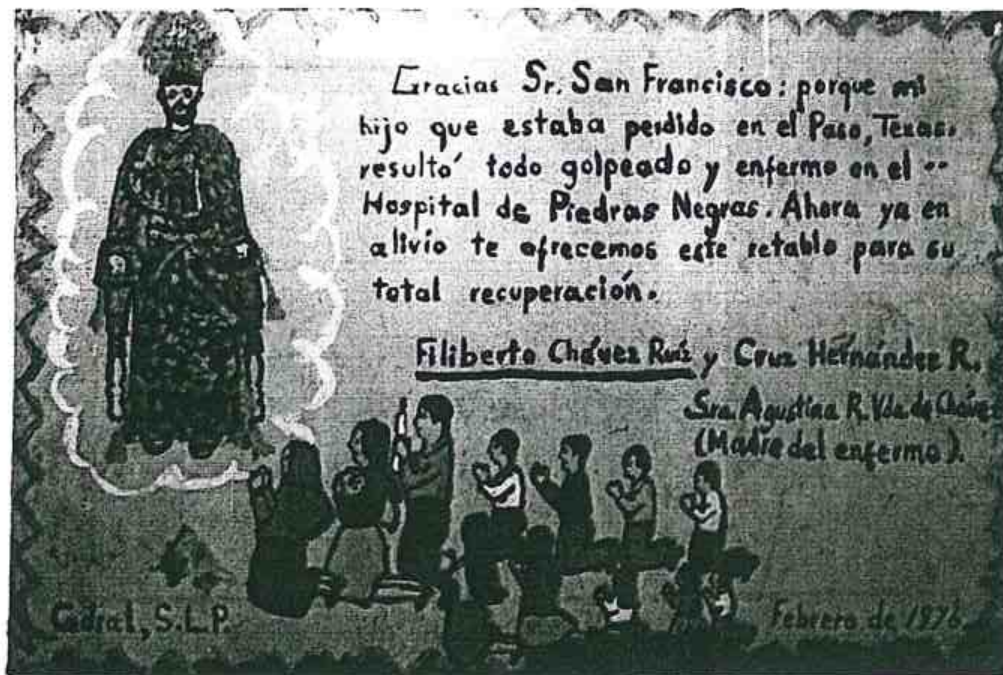 Gracias Sr. San Francisco: porque mi
hijo que estaba perdido en el Paso, Texas.
resultó todo golpeado y enfermo en el --
Hospital de Piedras Negras. Ahora ya en
alivio te ofrecemos este retablo para su
total recuperación.
Filiberto Chávez Ruíz y Cruz Hernández R.
Sra. Agustina R. Vda. de Chávez
(Madre del enfermo).
Cedral, S.L.P.
Febrero de 1976.